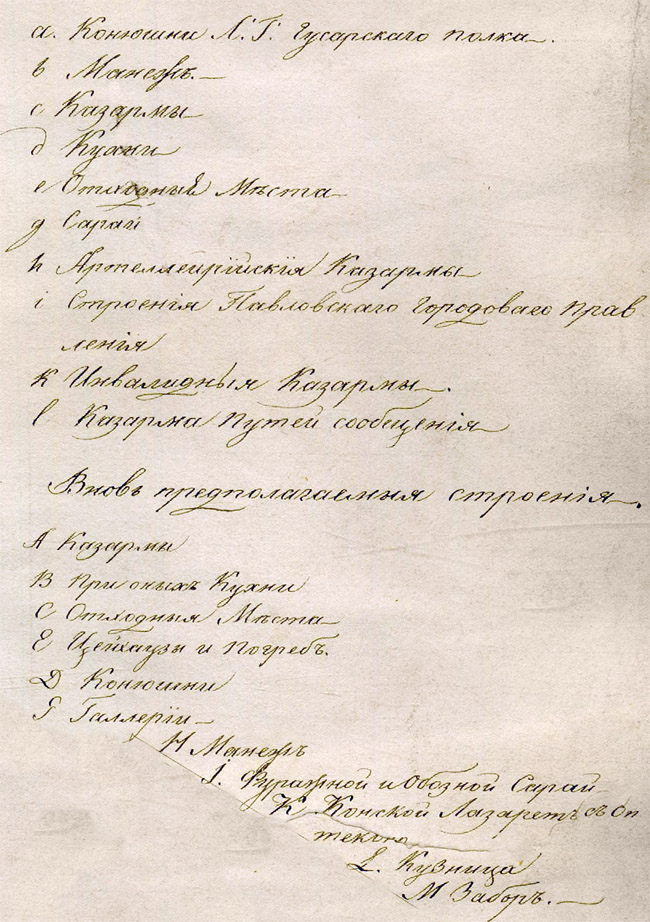 a. Конюшни Л. Г. Гусарскаго полка.
b Манежъ.
c Казармы
d Кухни
e Отходныя Мѣста
g Сарай
h Артеллейрійскія Казармы
i Строенія Павловскаго Городоваго Прав-
ленія
k Инвалидныя Казармы.
l Казарма Путей сообщенія
Вновь предполагаемыя строенія.
A Казармы
B При оныхъ Кухни
C Отходныя Мѣста
E Цейхаузы и Погребъ.
D Конюшни
G Галлерѣи
H Манежъ
J. Фуражной и Обозной Сарай
K Конской Лазаретъ съ Оп
текою
L. Кузница
M Заборъ.